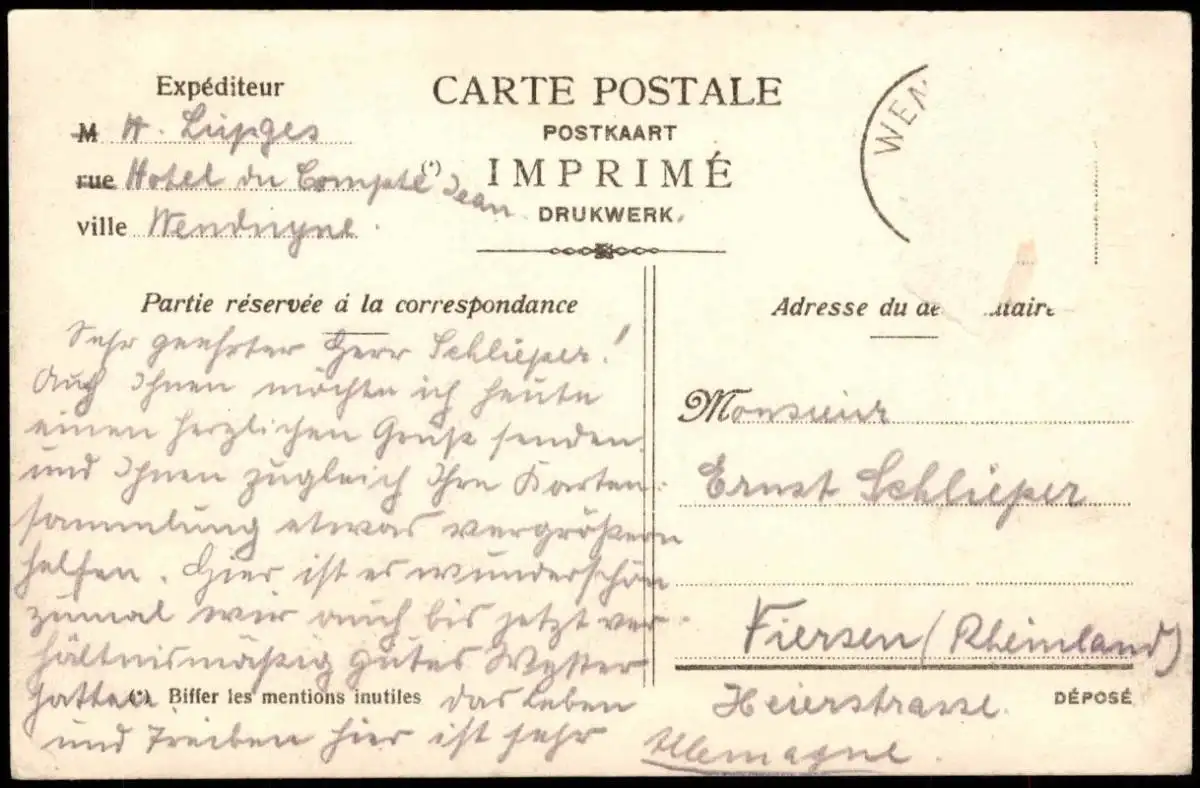 CARTE POSTALE
POSTKAART
IMPRIMÉ
DRUKWERK.
WEN
Expéditeur
M A. Lüpges
rue Hotel du Compte Jean (*)
ville Wenduyne.
Partie réservée à la correspondance
Sehr geehrter Herr Schlieper!
Auch Ihnen möchte ich heute
einen herzlichen Gruß senden
und Ihnen zugleich Ihre Karten:
sammlung etwas vergrößern
helfen. Hier ist es wunderschön
zumal wir auch bis jetzt ver-
hältnismäßig gutes Wetter
hatten. das Leben
und Treiben hier ist sehr
(*) Biffer les mentions inutiles
Adresse du de taire
Monsieur
Ernst Schlieper
Viersen (Rheinland)
Heierstrasse.
Allemagne.
DÉPOSÉ